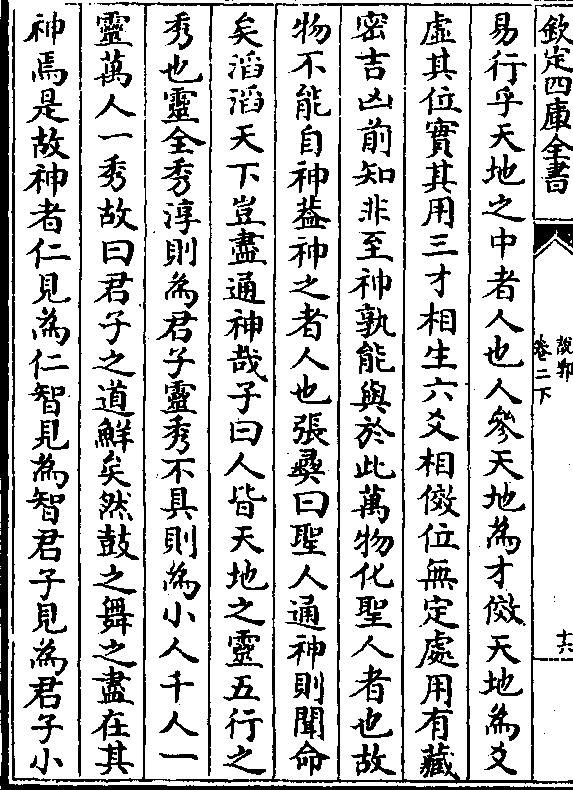 欽定四庫全書
說郛
卷二下
十六
易行乎天地之中者人也人參天地為才傚天地為爻
虛其位實其用三才相生六爻相傚位無定處用有藏
密吉凶前知非至神孰能與於此萬物化聖人者也故
物不能自神葢神之者人也張彞曰聖人通神則聞命
矣滔滔天下豈盡通神哉子曰人皆天地之靈五行之
秀也靈全秀淳則為君子靈秀不具則為小人千人一
靈萬人一秀故曰君子之道鮮矣然鼓之舞之盡在其
神焉是故神者仁見為仁智見為智君子見為君子小